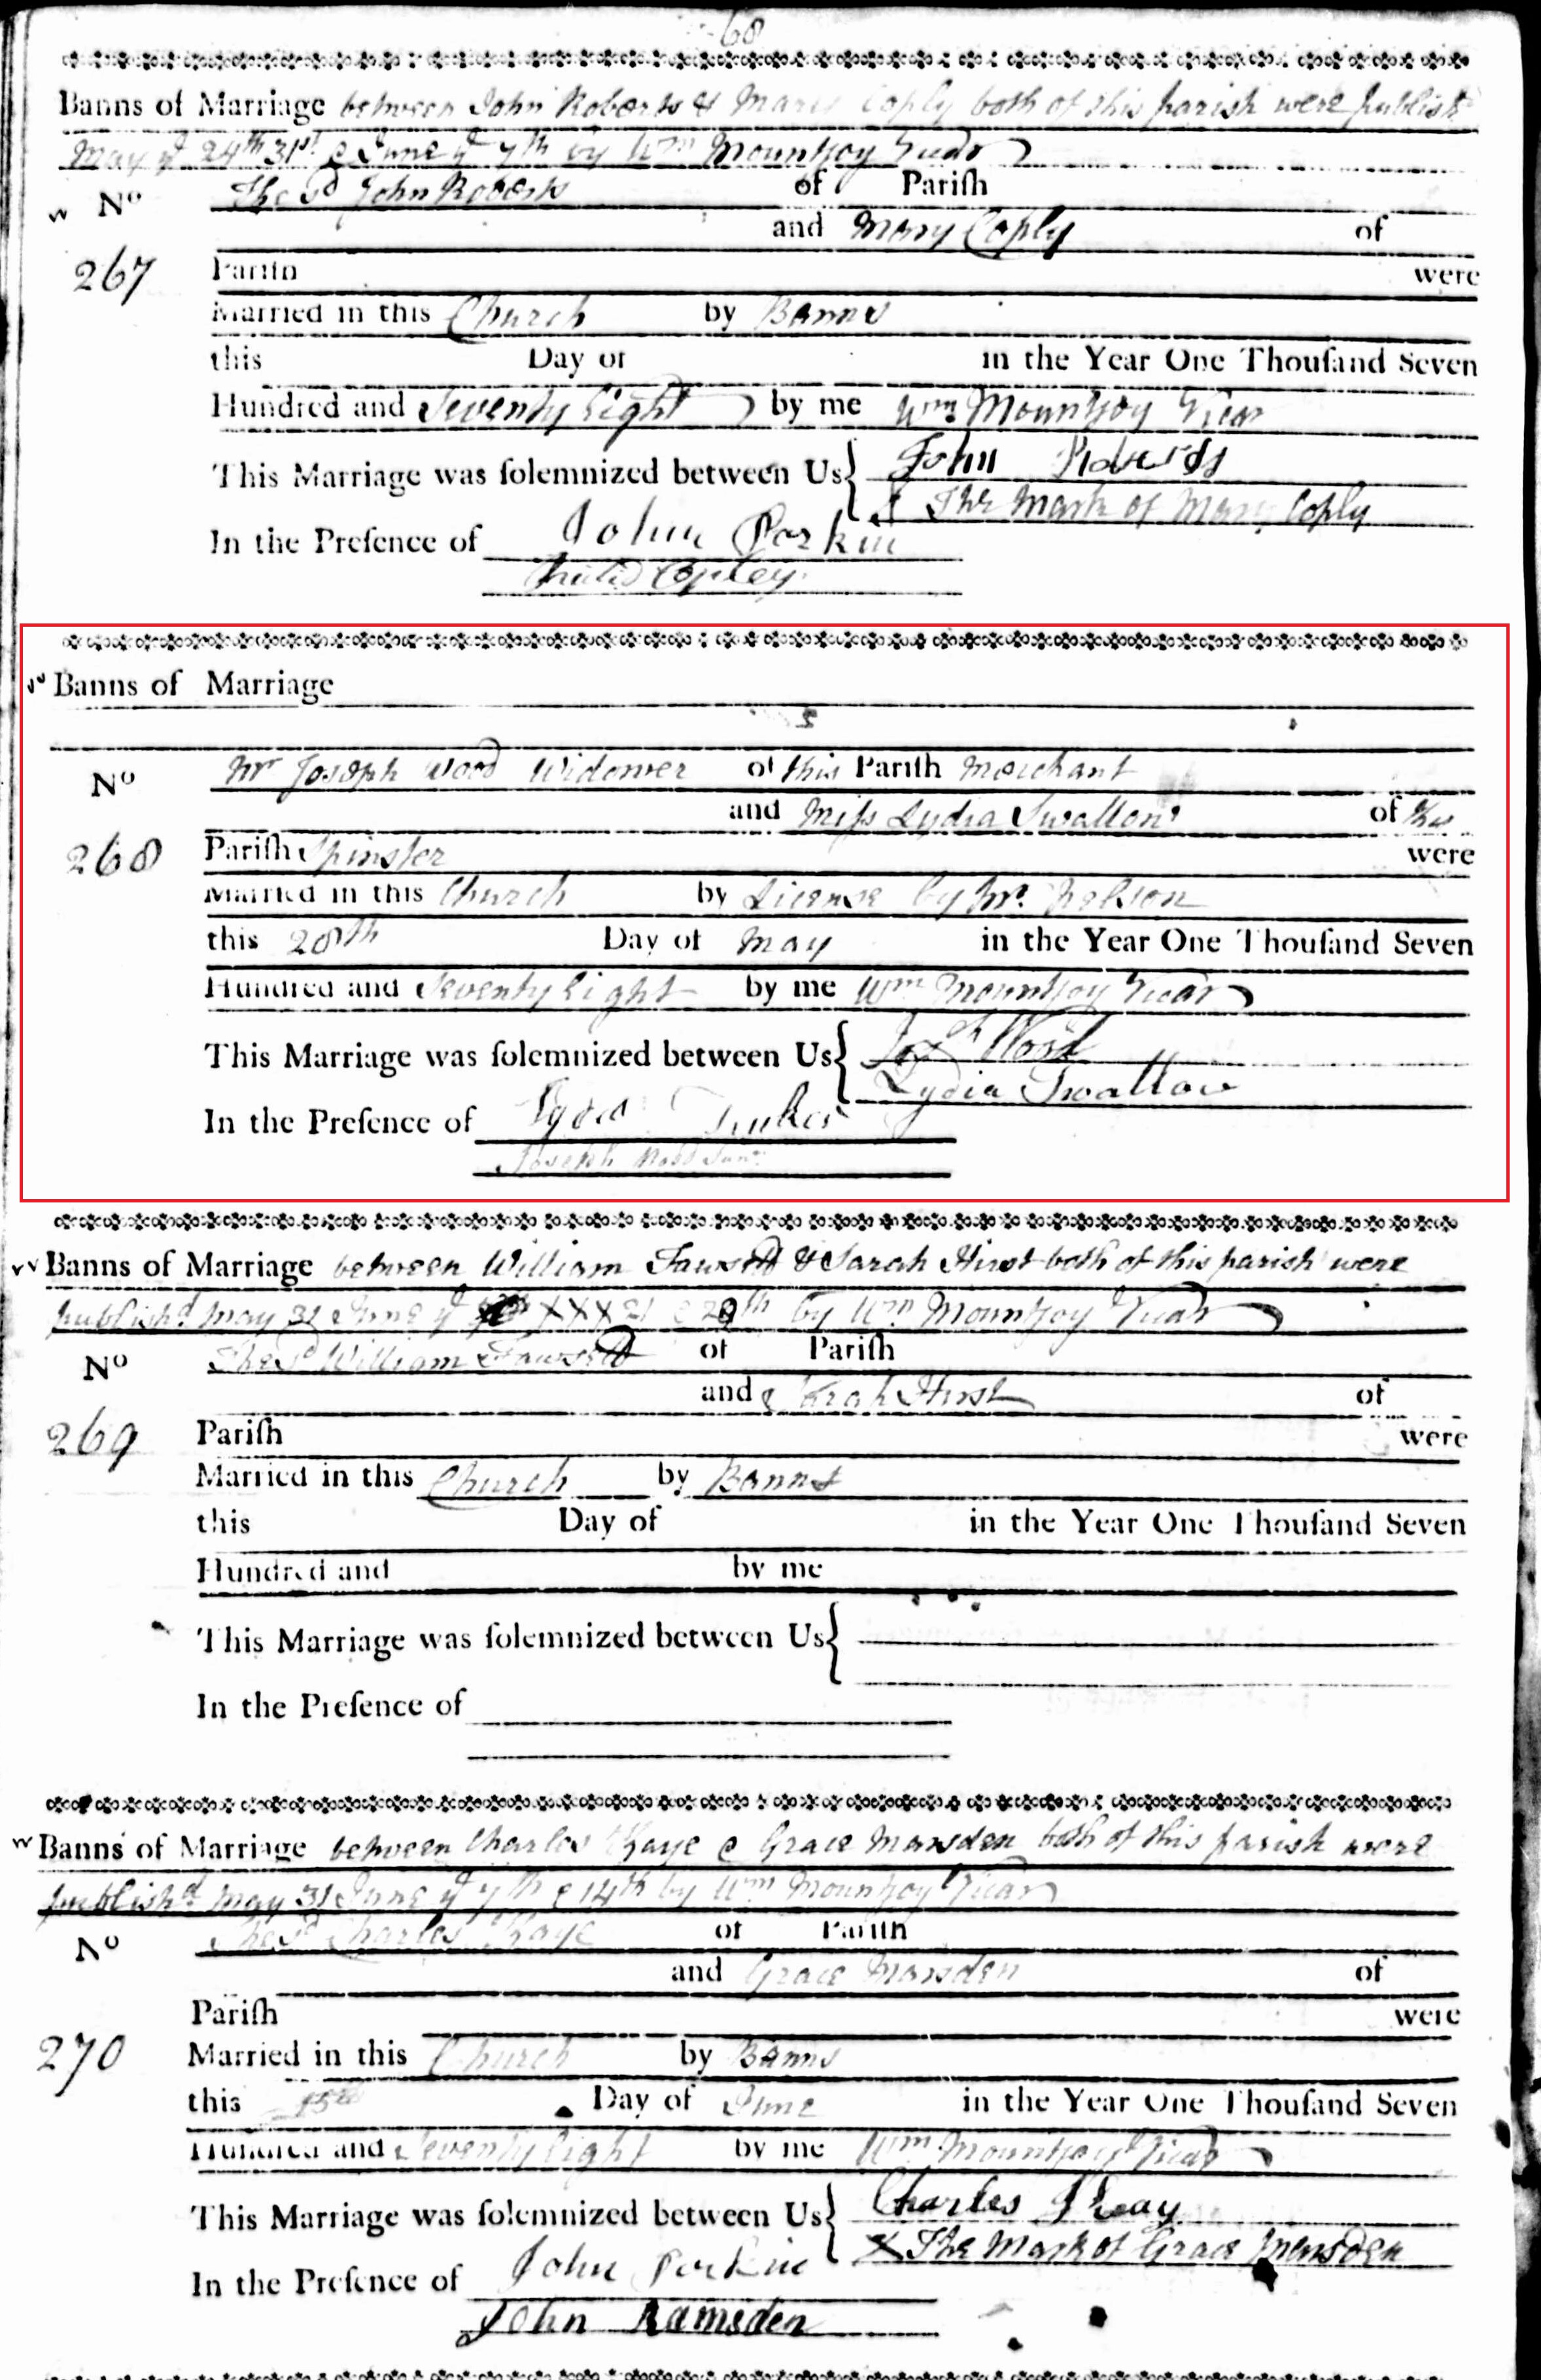 68
Banns of Marriage between John Roberts & Mary Coply both of this parish were publish
May ye 24th 31st & June ye 7th by Wm Mountjoy Vicar
No The sd John Roberts of Parish
and Mary Coply of
267 Parish were
Married in this Church by Banns
this Day of in the Year One Thousand Seven
Hundred and Seventy Eight by me Wm Mountjoy Vicar
This Marriage was solemnized between Us John Roberts
X The Mark of Mary Coply
In the Presence of John Parkin
Copley
Banns of Marriage
No Mr Joseph Wood Widower of this Parish Merchant
and Miss Lydia Swallow of this
268 Parish Spinster were
Married in this Church by License by Mr. Nelson
this 28th Day of May in the Year One Thousand Seven
Hundred and Seventy Eight by me Wm Mountjoy Vicar
This Marriage was solemnized between Us Josh Wood
Lydia Swallow
In the Presence of
Joseph Wood Junr
Banns of Marriage between William Fawsett & Sarah Hirst both of this parish were
publishd May 31 June ye XXX 21 & 28th by Wm Mountjoy Vicar
No The sd William Fawsett of Parish
and Sarah Hirst of
269 Parish were
Married in this Church by Banns
this Day of in the Year One Thousand Seven
Hundred and by me
This Marriage was solemnized between Us
In the Presence of
Banns of Marriage between Charles Kaye & Grace Marsden both of this parish were
publishd May 31 June ye 7th & 14th by Wm Mountjoy Vicar
No The sd Charles Kaye of Parish
and Grace Marsden of
Parish were
270 Married in this Church by Banns
this 15th Day of June in the Year One Thousand Seven
Hundred and Seventy Eight by me Wm Mountjoy Vicar
This Marriage was solemnized between Us Charles Kay
X The Mark of Grace Marsden
In the Presence of John Parkin
John Ramsden